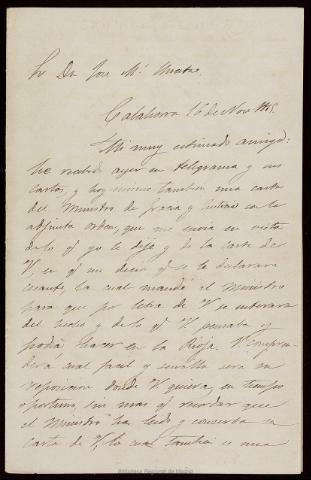 Sr Dn Jose Mª
Calahorra 16 de Nov 1868.
Mi muy estimado amigo:
he recibido ayer su telegrama y sus
cartas, y hoy mismo tambien una carta
del Ministro de Gracia y Justicia con la
adjunta orden, que me envia en vista
de lo q. yo le dije y de la carta de
V, en q. me decia q. se le declarara
cesante, la cual mandé al Ministro
para que por letra de V se enterara
del y de lo q. V pensaba y
podia hacer en la Rioja. V compren-
derá cual facil y sencilla será su
reposicion donde V quiera, en tiempo
oportuno, sin mas q. recordar que
el Ministro ha leido y conserva su
carta de V, lo cual tambien es una
Biblioteca Regional de Madrid